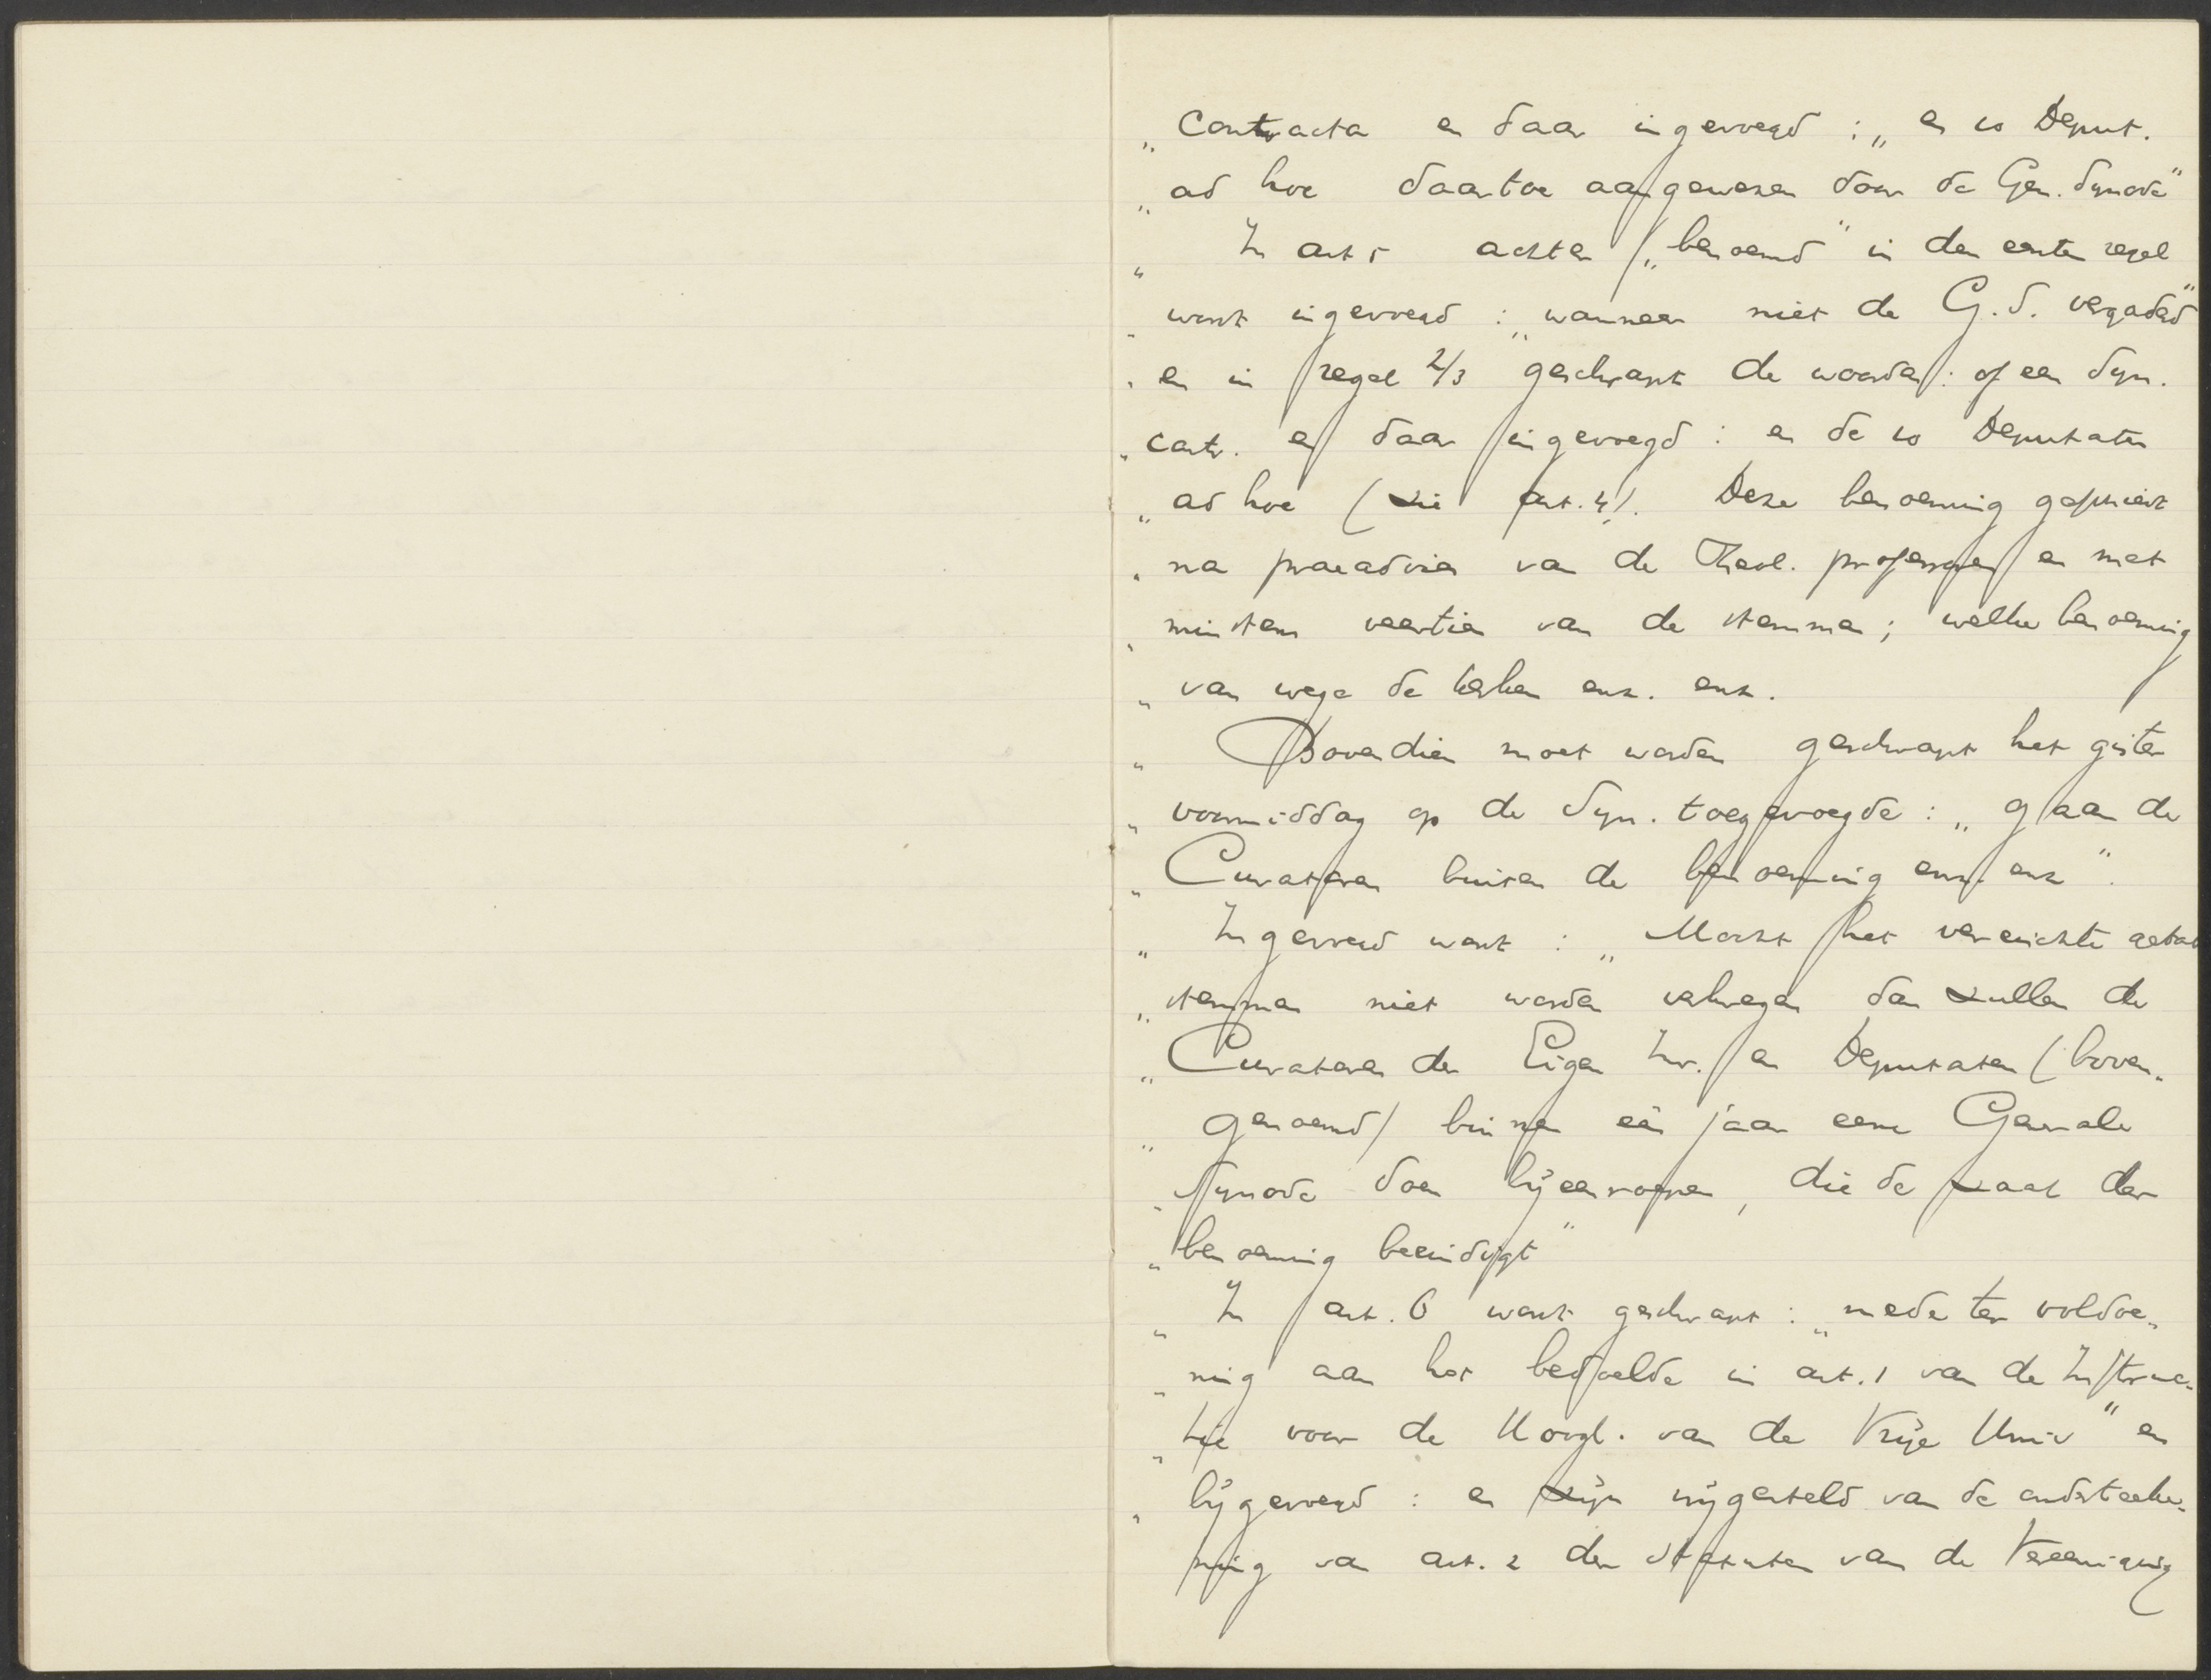 „ Contracta en daar ingevoegd : „ en 10 Deput.
„ ad hoc daartoe aangewezen door de Gen. Synode"
„ In art 5 achter „benoemd" in den eersten regel
„ wordt ingevoegd : „wanneer niet de G.S. vergadert"
„ en in regel 2/3 geschrapt de woorden : of een Syn.
„ contr. en daar ingevoegd : en de 10 Deputaten
„ ad hoc (zie art. 4). Deze benoeming geschiedt
„ na praeadvies van de Theol. professoren en met
„ minstens veertien van de stemmen ; welke benoeming
„ van wege de kerken enz. enz.
„ Bovendien moet worden geschrapt het gister
„ voormiddag op de Syn. toegevoegde : „ gaan de
„ Curatoren buiten de benoeming enz. enz".
„ Ingevoegd wordt : „ Mocht het vereischte getal
„ stemmen niet worden verkregen dan zullen de
„ Curatoren der Eigen Inr. en Deputaten (boven„
„ genoemd) binnen één jaar eene Generale
„ Synode doen bijeenroepen, die de zaak der
„ benoeming beeindigt"
„ In art. 6 wordt geschrapt : „mede ter voldoe„
„ ning aan het bedoelde in art. 1 van de Instruc„
„ tie voor de Hoogl. van de Vrije Univ" en
„ bijgevoegd : en zijn vrijgesteld van de onderteeke„
ning van art. 2 der Statuten van de Vereeniging